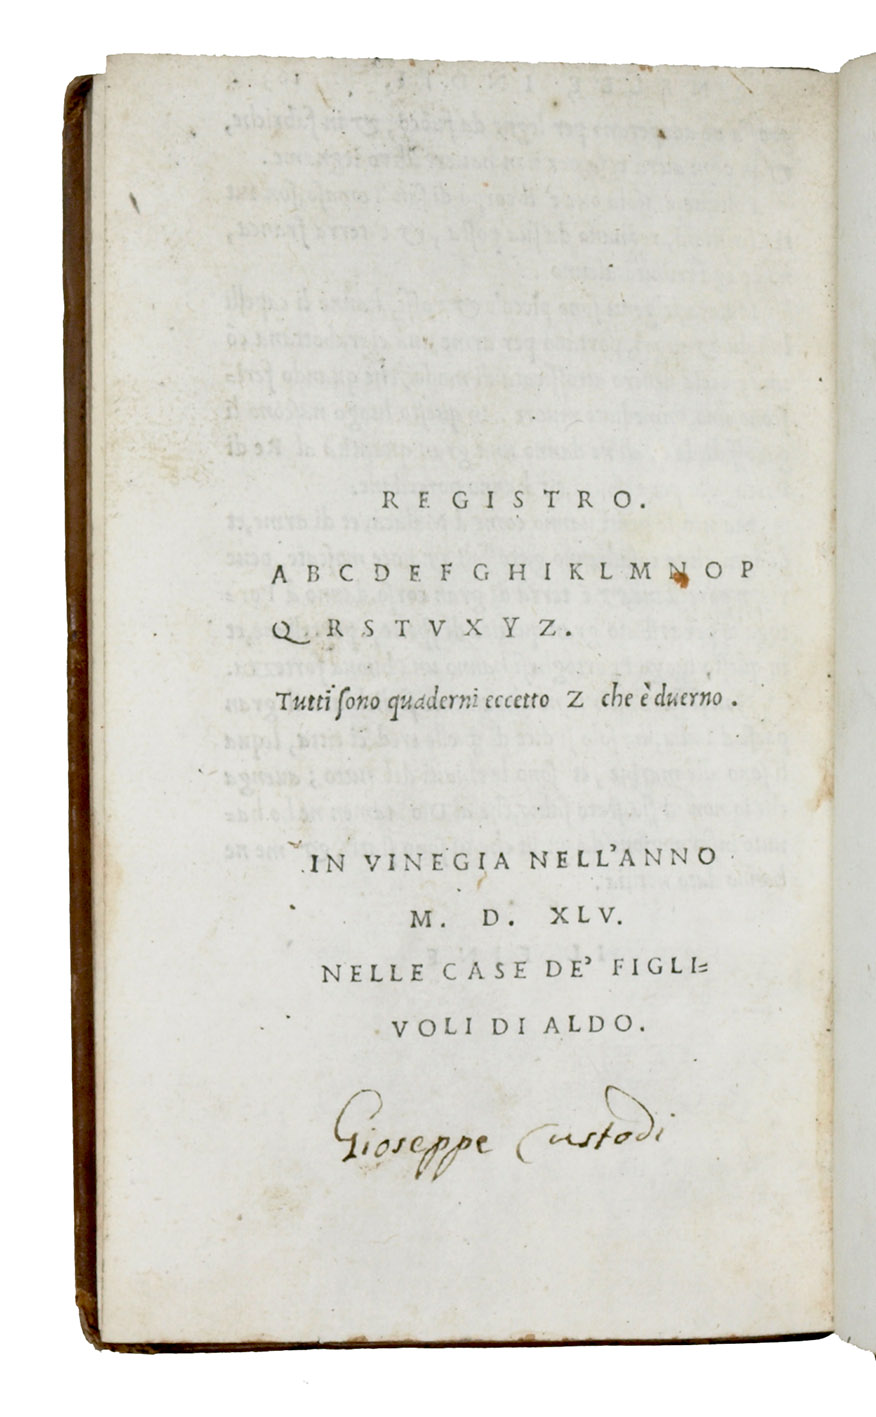 REGISTRO.
A B C D E F G H I K L M N O P
Q R S T V X Y Z.
Tutti ſono quaderni eccetto Z che è duerno.
IN VINEGIA NELL'ANNO
M. D. XLV.
NELLE CASE DE' FIGLI=
VOLI DI ALDO.
Gioseppe Custodi